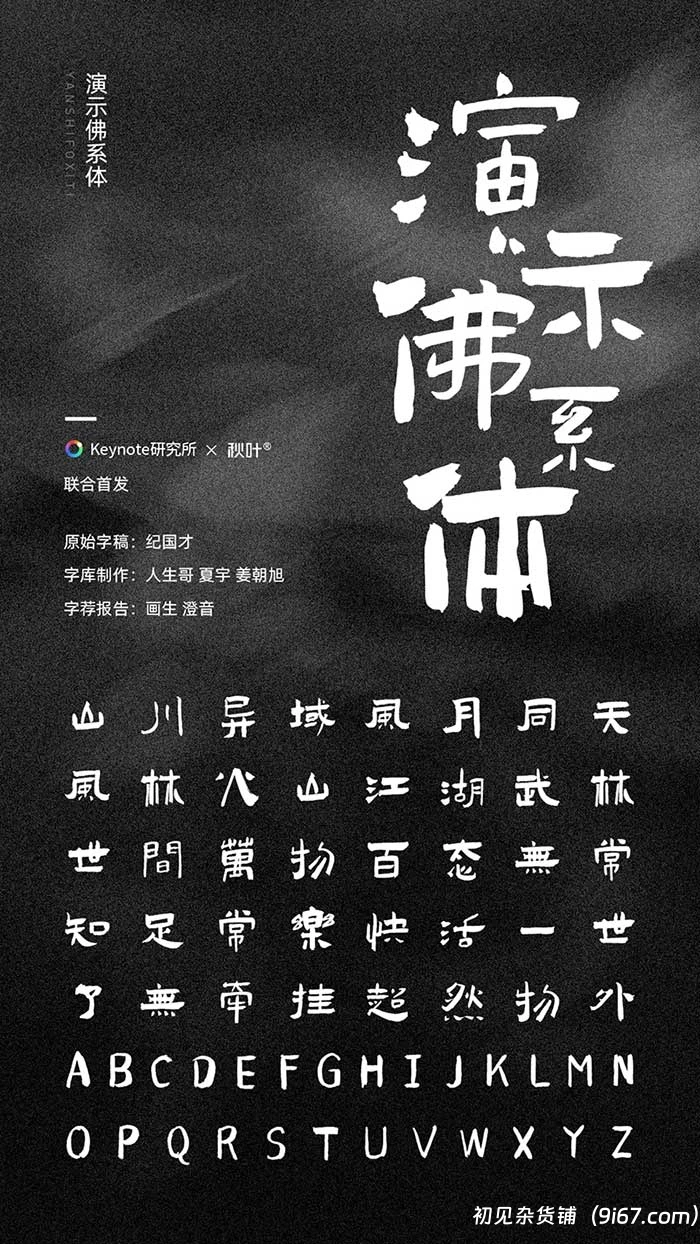 演示佛系体
YANSHIFOXITI
演示佛系体
Keynote研究所 × 秋叶®
联合首发
原始字稿：纪国才
字库制作：人生哥 夏宇 姜朝旭
字荐报告：画生 澄音
山川异域風月同天
風林火山江湖武林
世間萬物百态無常
知足常樂快活一世
了無牵挂超然物外
ABCDEFGHIJKLMN
OPQRSTUVWXYZ
初见杂货铺（9i67.com）